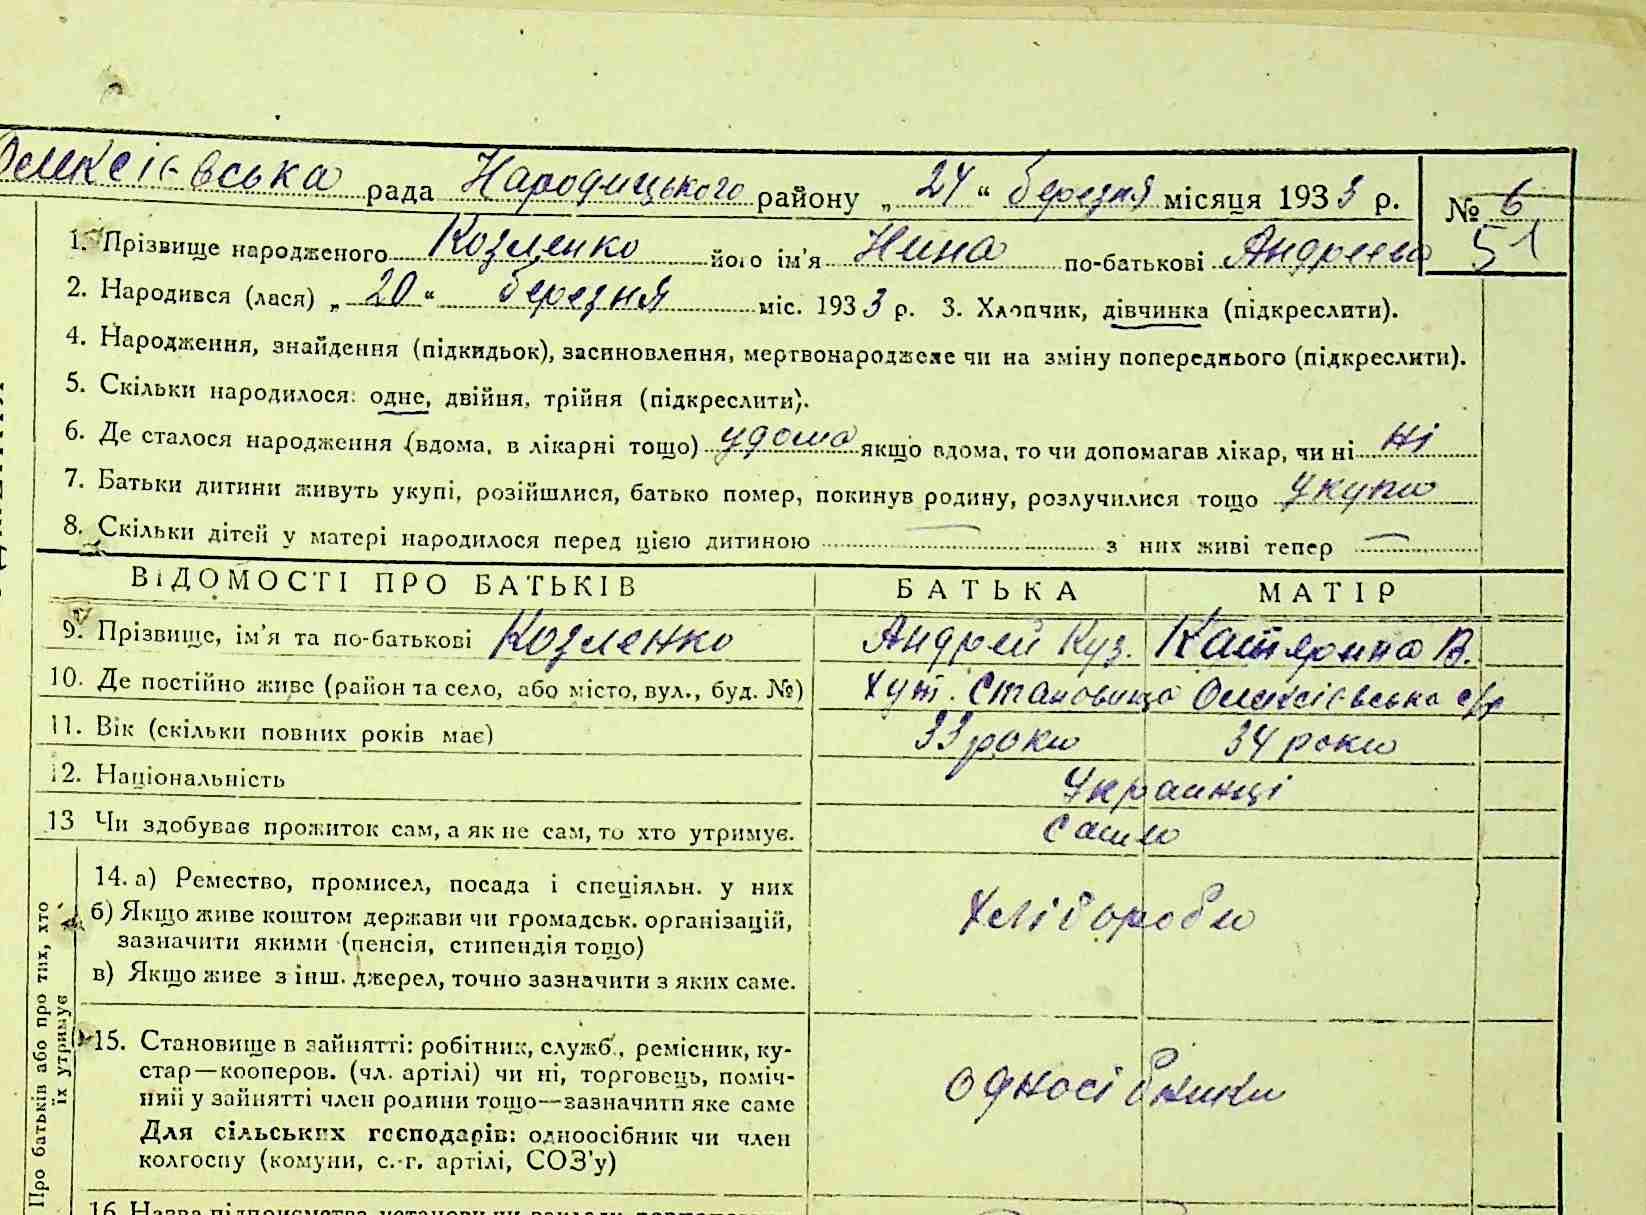 Олексіївська рада Народицького району „24“ березня місяця 1933 р. № 6
51
1. Прізвище народженого Козленко його ім’я Нина по-батькові Андреева
2. Народився (лася) „20“ березня міс. 1933 р. 3. Хлопчик, дівчинка (підкреслити).
4. Народження, знайдення (підкидьок), засиновлення, мертвонароджене чи на зміну попереднього (підкреслити).
5. Скільки народилося: одне, двійня, трійня (підкреслити).
6. Де сталося народження (вдома, в лікарні тощо) удома якщо вдома, то чи допомагав лікар, чи ні ні
7. Батьки дитини живуть укупі, розійшлися, батько помер, покинув родину, розлучилися тощо укупи
8. Скільки дітей у матері народилося перед цією дитиною — з них живі тепер —
ВІДОМОСТІ ПРО БАТЬКІВ БАТЬКА МАТІР
9. Прізвище, ім’я та по-батькові Козленко Андрей Куз. Катярина В.
10. Де постійно живе (район та село, або місто, вул., буд. №) Хут. Становище Олексієвська с/р
11. Вік (скільки повних років має) 33 роки 34 роки
12. Національність Украинці
13 Чи здобуває прожиток сам, а як не сам, то хто утримує. Сами
14. а) Ремество, промисел, посада і спеціяльн. у них Хлібороби
б) Якщо живе коштом держави чи громадськ. організацій,
зазначити якими (пенсія, стипендія тощо)
в) Якщо живе з інш. джерел, точно зазначити з яких саме.
Про батьків або про тих, хто
їх утримує
15. Становище в зайнятті: робітник, служб., ремісник, ку-
стар—кооперов. (чл. артілі) чи ні, торговець, поміч-
ний у зайнятті член родини тощо—зазначити яке саме односібники
Для сільських господарів: одноосібник чи член
колгоспу (комуни, с.-г. артілі, СОЗ’у)
16. Назва підприємства, установи чи